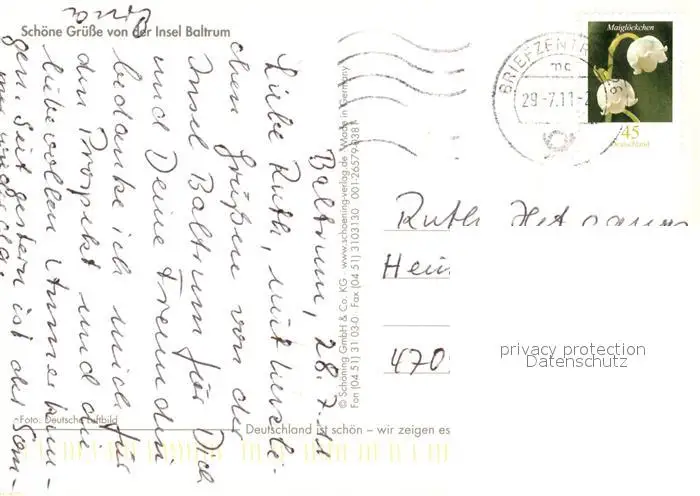 Schöne Grüße von der Insel Baltrum
Baltrum, 28.7.
Liebe Ruth, mit
chen Grüßen von der
Insel Baltrum für Dich
und Deine Freundin
bedanke ich mich für
den Prospekt und die
liebevollen
gen. Seit gestern ist der Som-
Foto: Deutsche Luftbild
© Schöning GmbH & Co. KG www.schoening-verlag.de Made in Germany
Fon (04 51) 31 03-0 Fax (04 51) 3103130
Deutschland ist schön – wir zeigen es
Maiglöckchen
45
Deutschland
BRIEFZENTR
29.-7.11-
Ruth
Hein
470
privacy protection
Datenschutz